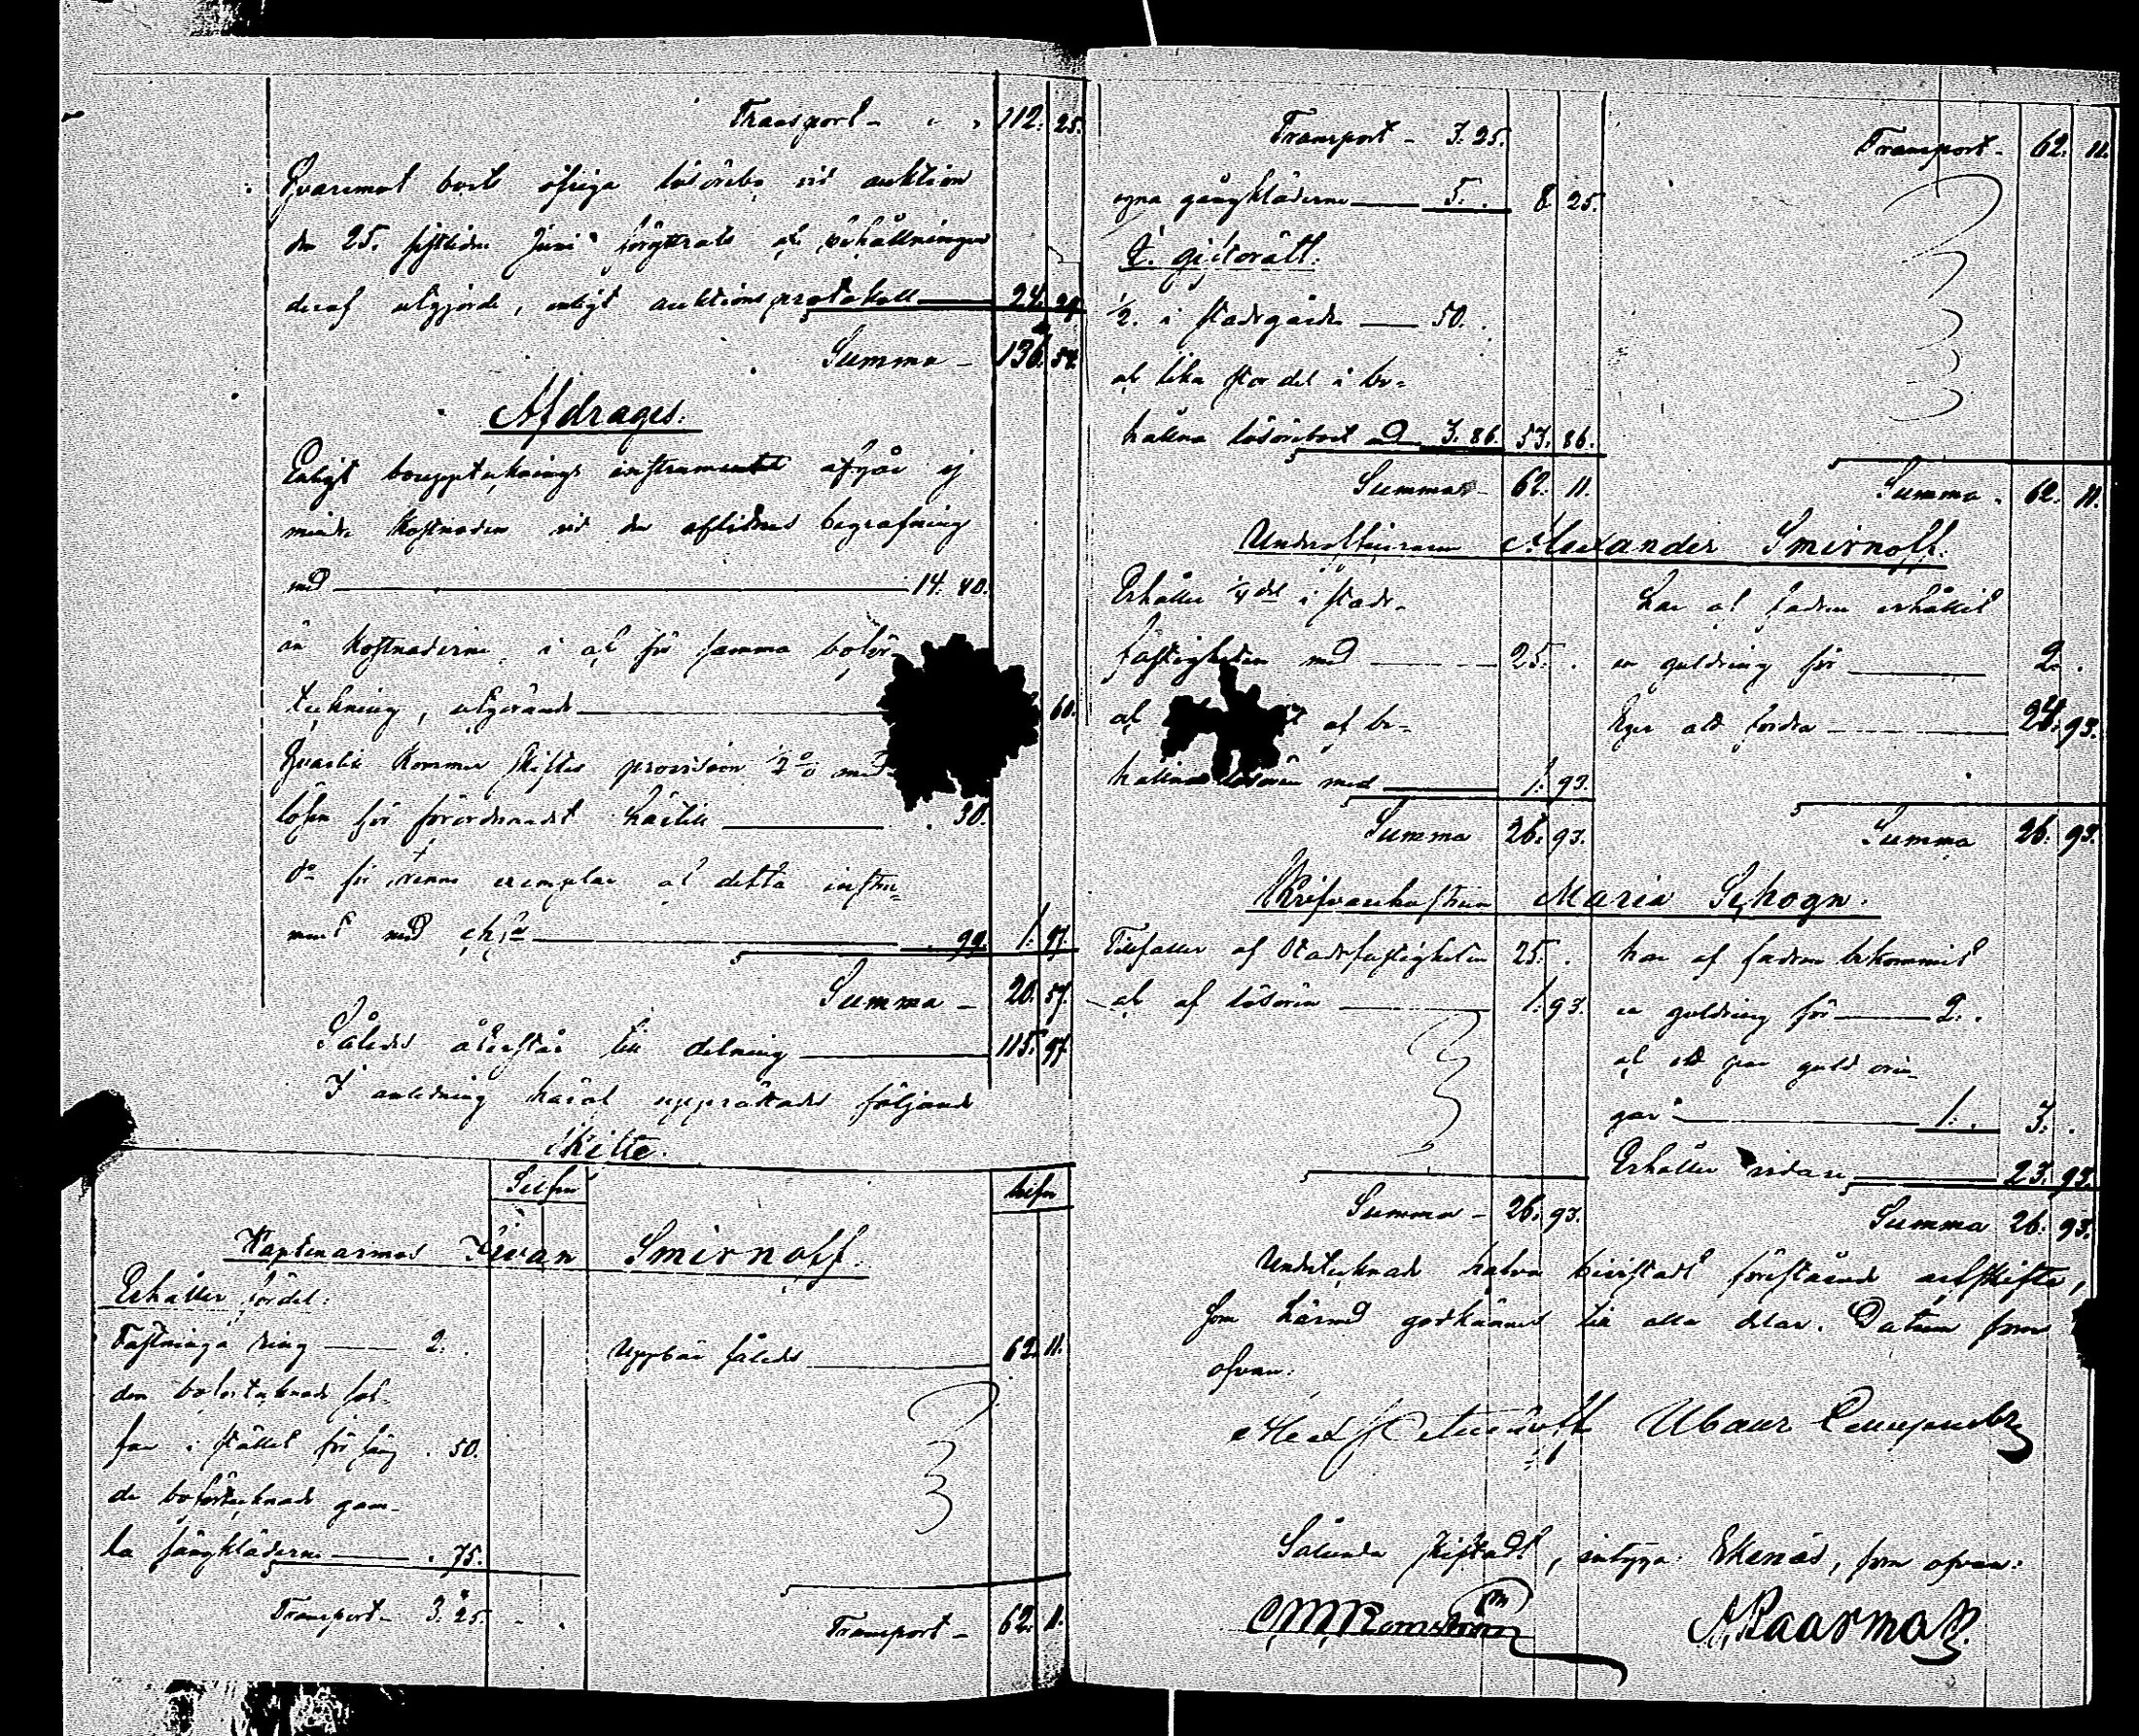 Transport - " " 112. 25.
Hvaremot bort öfriga lösörebo vid auktion
den 25. sistliden Juni föryttrats och behållningen
deraf utgjorde, enligt auktionsprotokoll 24.
Summa - 136. 54.
Afdrages.
Enligt bouppteknings instrumentet afgår ej
mindre kostnaden vid den aflidnes begrafning
med 14. 40.
än kostnaderne i och för samma boför-
tekning, utgörande 60.
Hvartill kommer skiftes provision ½ % med
lösen för förordnandet härtill . 30.
d:o för trenne exemplar af detta instru-
ment med ch:s . 99. 1. 97.
Summa - 20. 57.
Således återstår till delning 115. 97.
I anledning häraf upprättades följande
Skifte.
Silfver
Silfver
Kaptenarmus Iwan Smirnoff.
Erhåller fördel:
Fästninga ring 2. .
den boförteknade sof-
fan i stället för säng . 50.
de boförteknade gam-
la sängkläderne . 75.
Transport - 3. 25.
Uppbär således 62. 11.
Transport - 62. 11.
Transport - 3. 25.
egna gångkläderne 5. . 8. 25.
I giftorätt:
½ i stadsgården 50. .
och lika stor del i be-
hållna lösörebort med 3. 86. 53. 86.
Summa - 62. 11.
Transport - 62. 11.
Summa . 62. 11.
Underofficeraren Alexander Smirnoff.
Erhåller ¼ del i stads-
fastigheten med 25. .
och af be-
hållna lösören med 1. 93.
Summa 26. 93.
har af fadren erhållit
en guldring för 2. .
Eger att fordra 24. 93.
Summa 26. 93.
Maria Schogn.
Tillfaller af Stadsfastigheten 25. .
och af lösören 1. 93.
Summa - 26. 93.
har af fadren bekommit
en guldring för 2. .
och ett par guld örin-
gar 1. . 3. .
Erhåller vidare 23. 93.
Summa 26. 93.
Undertecknade hafva förestående arfskifte,
som härmed godkännes till alla delar. Datum som
ofvan.
Sålunda skiftadt, intyga: Ekenäs, som ofvan: